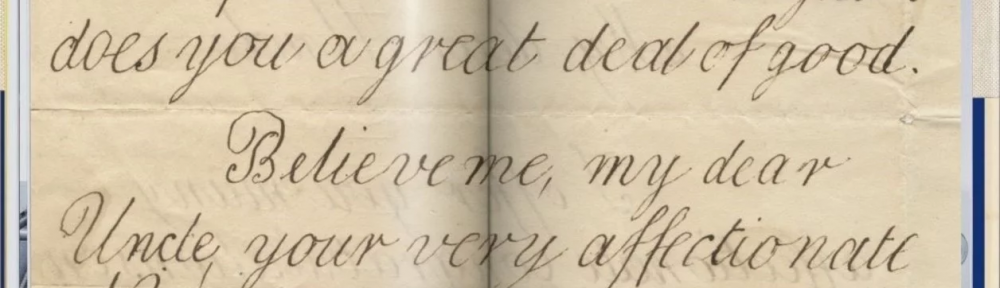 does you a great deal of good.
Believe me, my dear
Uncle, your very affectionate